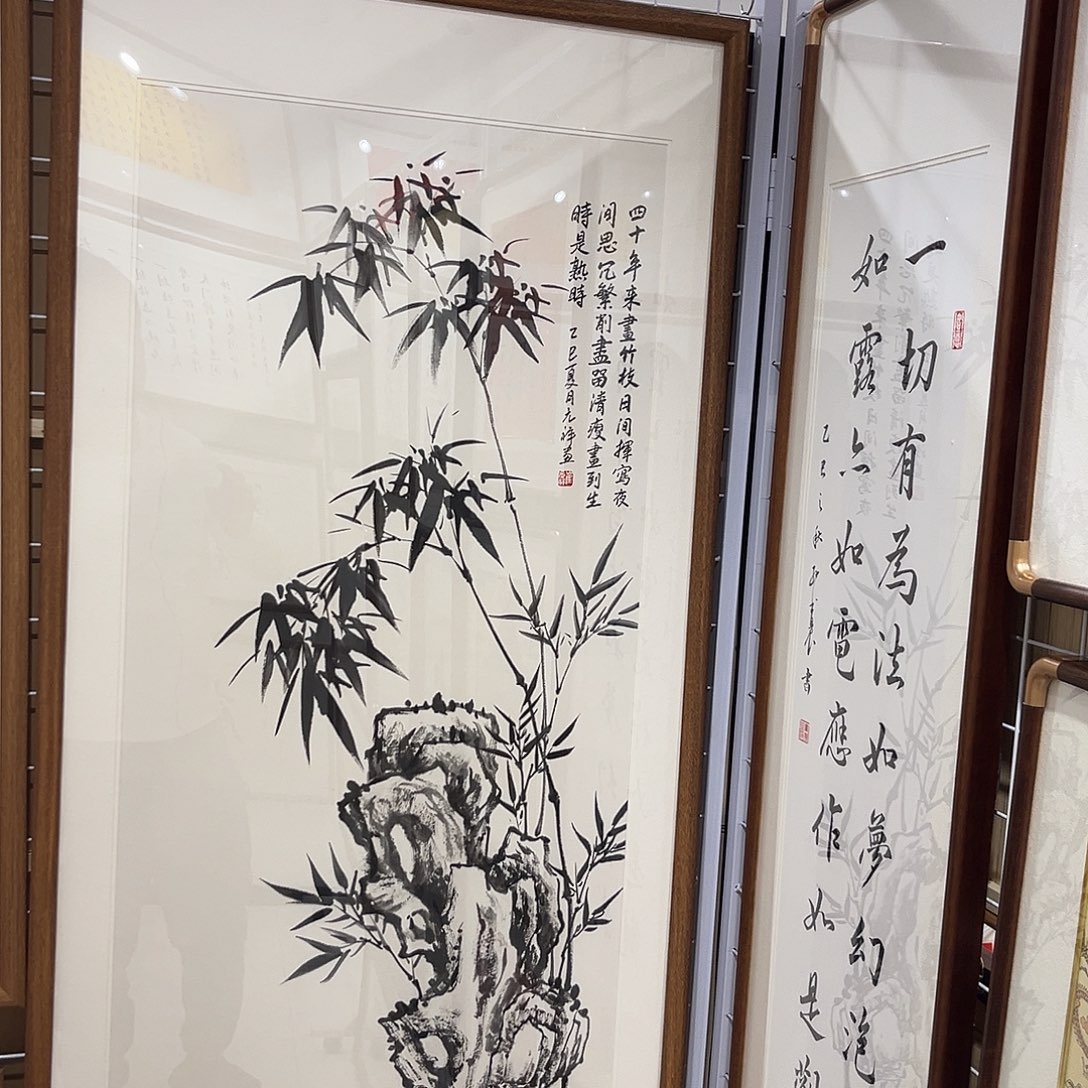 四十年来畫竹枝日间揮寫夜
间思冗繁削盡留清瘦畫到生
時是熟時
乙巳夏月
一切有為法如夢幻泡
如露亦如電應作如是觀
乙巳之秋
書